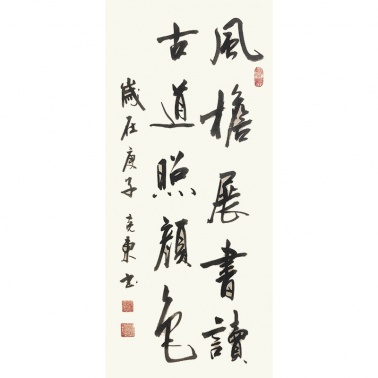 風檐展書讀
古道照顏色
歲在庚子克東书